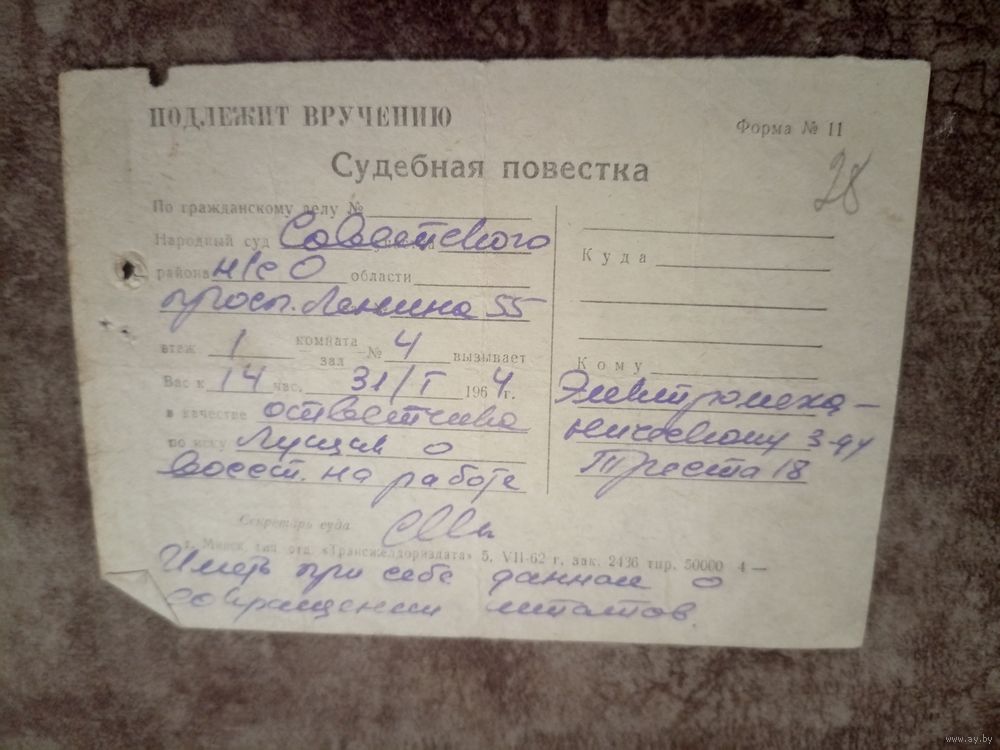 ПОДЛЕЖИТ ВРУЧЕНИЮ
Форма № 11
28
Судебная повестка
По гражданскому делу №
Народный суд Советского
района области
просп. Ленина 55
этаж 1 комната зал № 4 вызывает
Вас к 14 час. 31/I 1964 г.
в качестве ответчика
по иску Лущик о
восст. на работе
Секретарь суда
Куда
Кому
Электромеха-
ническому з-ду
Треста 18
г. Минск тип. отд. «Трансжелдориздата» 5. VII-62 г. зак. 2436 тир. 50000 4 —
Иметь при себе данные о
сокращении штатов.
www.ay.by